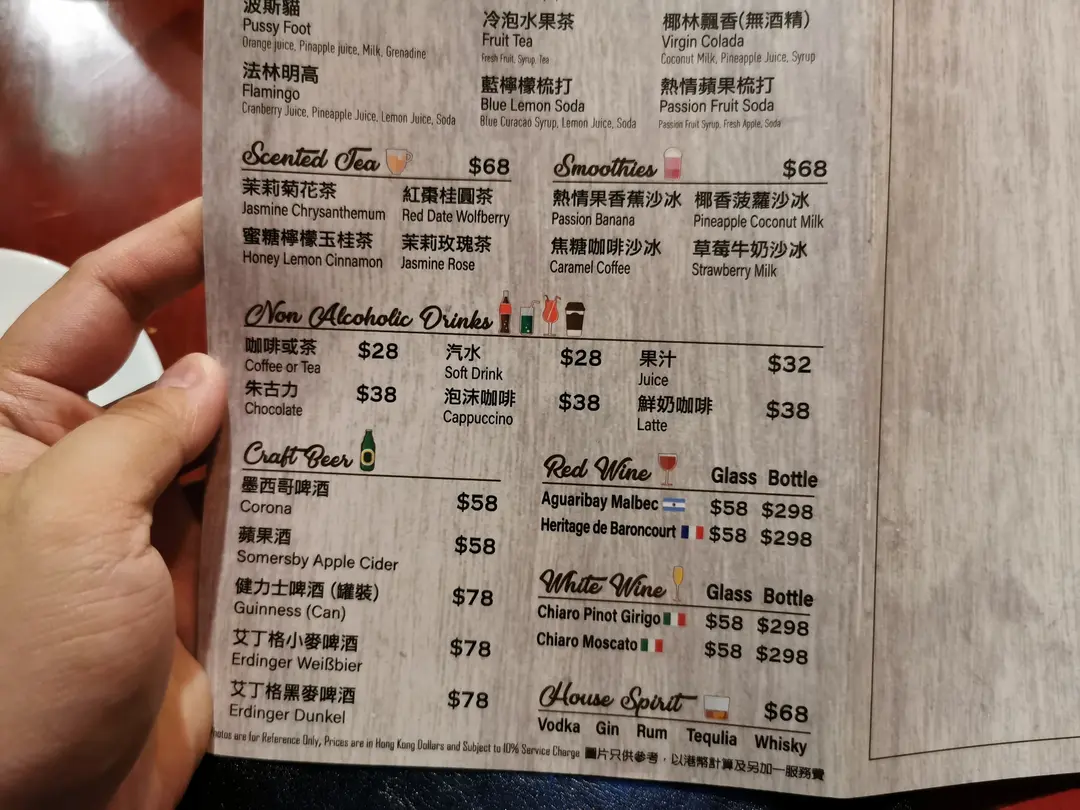 波斯貓
Pussy Foot
Orange juice, Pinapple juice, Milk, Grenadine
冷泡水果茶
Fruit Tea
Fresh Fruit, Syrup, Tea
椰林飄香(無酒精)
Virgin Colada
Coconut Milk, Pineapple Juice, Syrup
法林明高
Flamingo
Cranberry Juice, Pineapple Juice, Lemon Juice, Soda
藍檸檬梳打
Blue Lemon Soda
Blue Curacao Syrup, Lemon Juice, Soda
熱情蘋果梳打
Passion Fruit Soda
Passion Fruit Syrup, Fresh Apple, Soda
Scented Tea $68
茉莉菊花茶 紅棗桂圓茶
Jasmine Chrysanthemum Red Date Wolfberry
蜜糖檸檬玉桂茶 茉莉玫瑰茶
Honey Lemon Cinnamon Jasmine Rose
Smoothies $68
熱情果香蕉沙冰 椰香菠蘿沙冰
Passion Banana Pineapple Coconut Milk
焦糖咖啡沙冰 草莓牛奶沙冰
Caramel Coffee Strawberry Milk
Non Alcoholic Drinks
咖啡或茶 $28 汽水 $28 果汁 $32
Coffee or Tea Soft Drink Juice
朱古力 $38 泡沫咖啡 $38 鮮奶咖啡 $38
Chocolate Cappuccino Latte
Craft Beer
墨西哥啤酒 $58
Corona
蘋果酒 $58
Somersby Apple Cider
健力士啤酒 (罐裝) $78
Guinness (Can)
艾丁格小麥啤酒 $78
Erdinger Weißbier
艾丁格黑麥啤酒 $78
Erdinger Dunkel
Red Wine Glass Bottle
Aguaribay Malbec $58 $298
Heritage de Baroncourt $58 $298
White Wine Glass Bottle
Chiaro Pinot Girigo $58 $298
Chiaro Moscato $58 $298
House Spirit $68
Vodka Gin Rum Tequlia Whisky
Photos are for Reference Only, Prices are in Hong Kong Dollars and Subject to 10% Service Charge 圖片只供參考，以港幣計算及另加一服務費